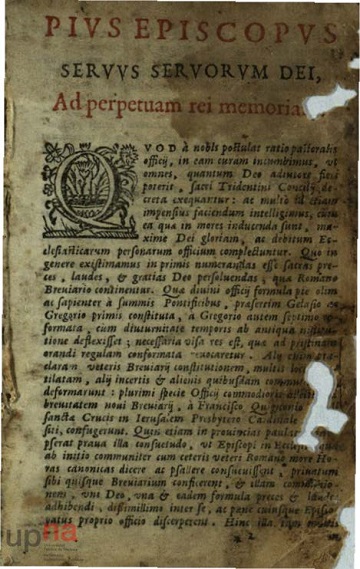 PIVS EPISCOPVS
SERVVS SERVORVM DEI,
Ad perpetuam rei memoria
QVOD à nobis postulat ratio pastoralis
officij, in eam curam incumbimus, vt
omnes, quantum Deo adiutore fieri
poterit, sacri Tridentini Concilij de-
creta exequantur: ac multo id etiam
impensius faciendum intelligimus, cum
ea quæ in mores inducenda sunt, ma-
xime Dei gloriam, ac debitum Ec-
clesiasticarum personarum officium complectuntur. Quo in
genere existimamus in primis numerandas esse sacras pre-
ces, laudes, & gratias Deo persoluendas, quæ Romano
Breuiario continentur. Quæ diuini officij formula pie olim
ac sapienter à summis Pontificibus, præsertim Gelasio &
Gregorio primis constituta, a Gregorio autem septimo re-
formata, cùm diuturnitate temporis ab antiqua institu-
tione deflexisset; necessaria visa res est, quæ ad pristinam
orandi regulam conformata reuocaretur. Alij enim
claram veteris Breuiarij constitutionem, multis
tilatam, alij incertis & alienis quibusdam
deformarunt: plurimi specie Officij commodioris
breuitatem noui Breuiarij, à Francisco Quignonio
sanctæ Crucis in Ierusalem Presbytero Cardinale
siti, confugerunt. Quin etiam in prouincias paulatim
pserat praua illa consuetudo, vt Episcopi in Ecclesijs, quæ
ab initio communiter cum ceteris veteri Romano more Ho-
ras canonicas dicere ac psallere consueuissent, priuatum
sibi quisque Breuiarium conficerent, & illam communio-
nem, vni Deo, vna & eadem formula preces & laudes
adhibendi, dissimillimo inter se, ac pæne cuiusque Episco-
patus proprio officio discerperent. Hinc illa tam multis
2
upna